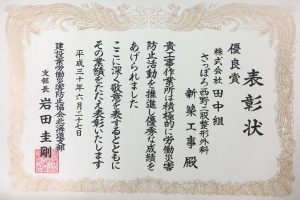 表彰状
優良賞
株式会社 田中組
さっぽろ西野二股整形外科
新築工事 殿
貴工事作業所は積極的に労働災害
防止活動を推進し優秀な成績を
あげられました
ここに深く敬意を表するとともに
その業績をたたえ表彰いたします
平成三十年六月二十七日
建設業労働災害防止協会北海道支部
支部長 岩田圭剛